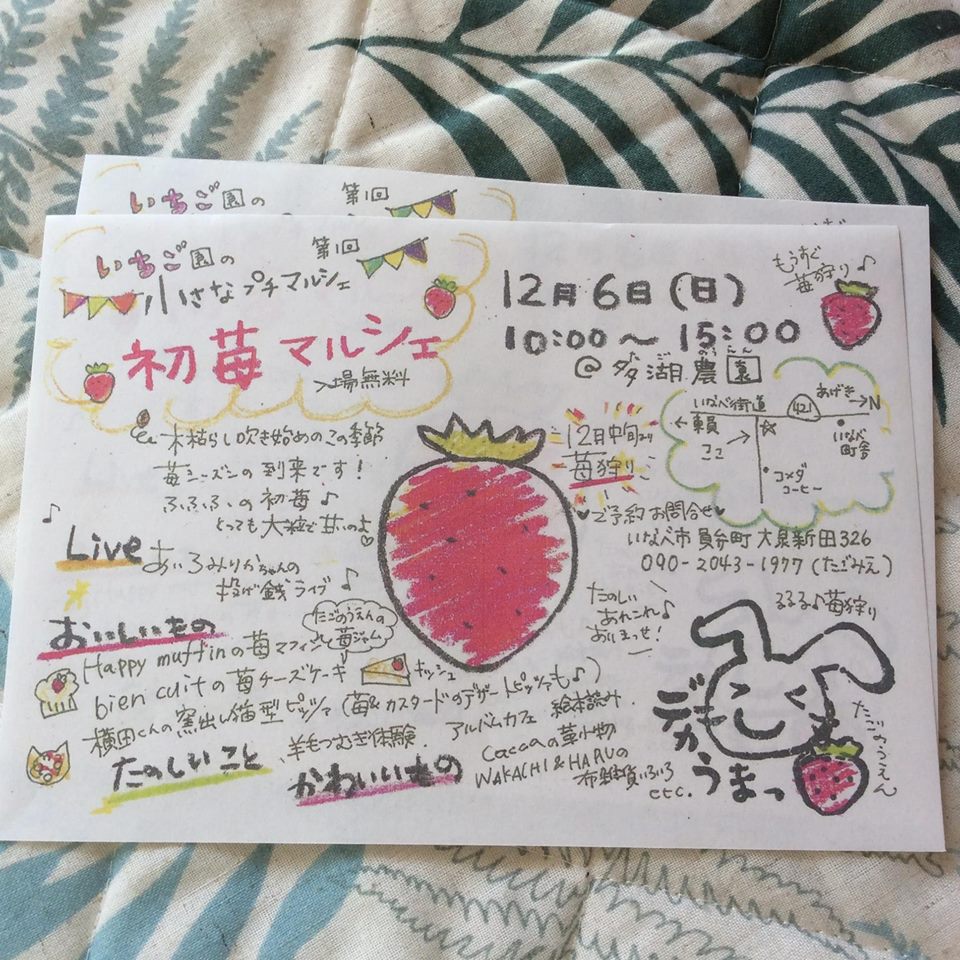 いちご園の
第1回
いちご園の
第1回
小さなプチマルシェ
初苺マルシェ
入場無料
12月6日(日)
10:00〜15:00
@多湖農園
のうえん
もうすぐ
苺狩り♪
木枯らし吹き始めのこの季節
苺シーズンの到来です!
ふふふ、の初苺♪
とっても大粒で甘いのよ
12月中旬より
苺狩り
いなべ街道
421
あげき
→N
←東員
ココ
コメダ
コーヒー
いなべ
町舎
♥ご予約お問合せ♥
いなべ市員弁町大泉新田326
090-2043-1977(たごみえ)
♪
Live
あいろみりかちゃんの
投げ銭ライブ♪
たのしい
あれこれ♪
ありまっせ!
るるる♪苺狩り
おいしいもの
たごのうえんの
苺ジャム
Happy muffinの苺マフィンと
bien cuitの苺チーズケーキ
キッシュ
横田くんの窯出し猫型ピッツァ(苺&カスタードのデザートピッツァも♪)
たのしいこと
羊毛つむぎ体験.
アルバムカフェ 絵本読み.
かわいいもの
caccaの革小物
WAKACHI & HARUの
布雑貨いろいろ
etc.
デカっ
うまっ
たごのうえん